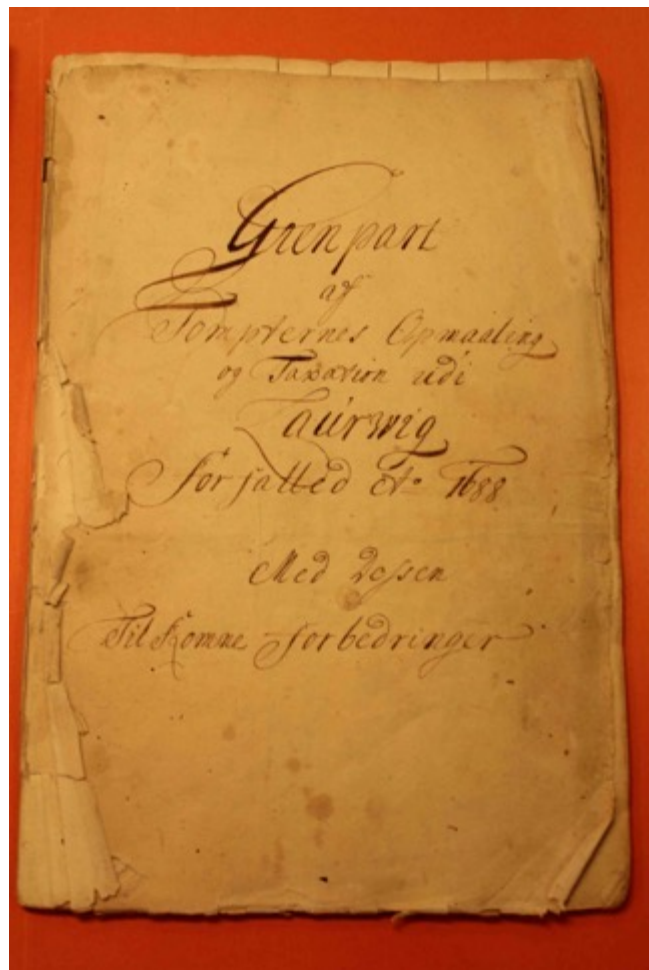 Gienpart
af
Tompternes Opmaaling
og Taxation udi
Laurwig
forfatted Ao 1688
Med Dessen
Til Komne forbedringer